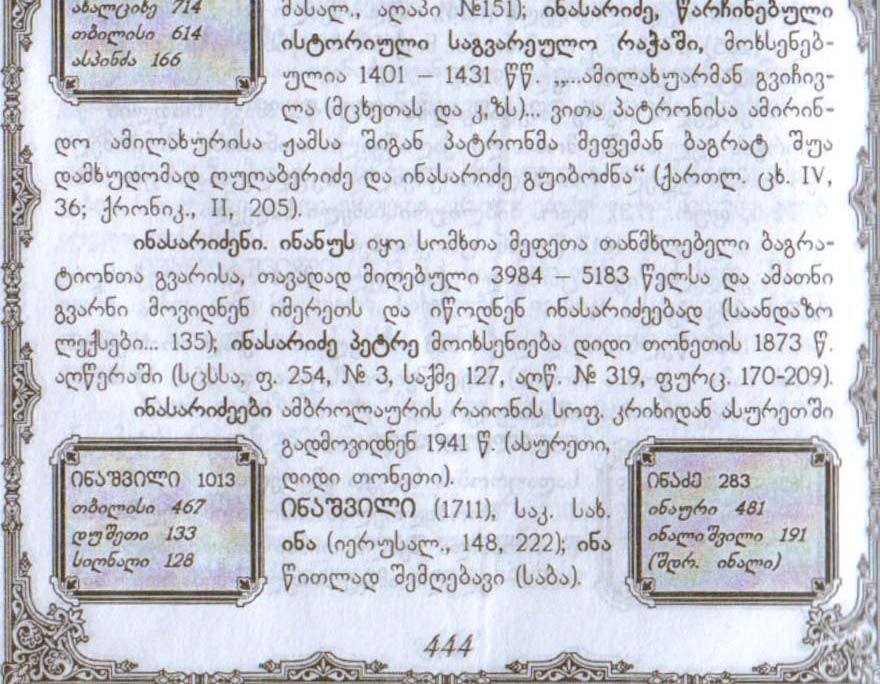 ახალციხე 714
თბილისი 614
ასპინძა 166
მასალ., აღაპი №151); ინასარიძე, წარჩინებული
ისტორიული საგვარეულო რაჭაში, მოხსენებ-
ულია 1401 – 1431 წწ. „...ამილახუარმან გვიჩივ-
ლა (მცხეთას და კ,ზს)... ვითა პატრონისა ამირინ-
დო ამილახურისა ჟამსა შიგან პატრონმა მეფემან ბაგრატ შუა
დამხუდომად ღუღაბერიძე და ინასარიძე გუიბოძნა“ (ქართლ. ცხ. IV,
36; ქრონიკ., II, 205).
ინასარიძენი. ინანუს იყო სომხთა მეფეთა თანმხლებელი ბაგრა-
ტიონთა გვარისა, თავადად მიღებული 3984 – 5183 წელსა და ამათნი
გვარნი მოვიდნენ იმერეთს და იწოდნენ ინასარიძეებად (საანდაზო
ლექსები... 135); ინასარიძე პეტრე მოიხსენიება დიდი თონეთის 1873 წ.
აღწერაში (სცსსა, ფ. 254, № 3, საქმე 127, აღწ. № 319, ფურც. 170-209).
ინასარიძეები ამბროლაურის რაიონის სოფ. კრიხიდან ასურეთში
გადმოვიდნენ 1941 წ. (ასურეთი,
დიდი თონეთი).
ინაშვილი (1711), საკ. სახ.
ინა (იერუსალ., 148, 222); ინა
წითლად შემღებავი (საბა).
ინაშვილი 1013
თბილისი 467
დუშეთი 133
სიღნაღი 128
ინაძე 283
ინაური 481
ინალიშვილი 191
(შდრ. ინალი)
444